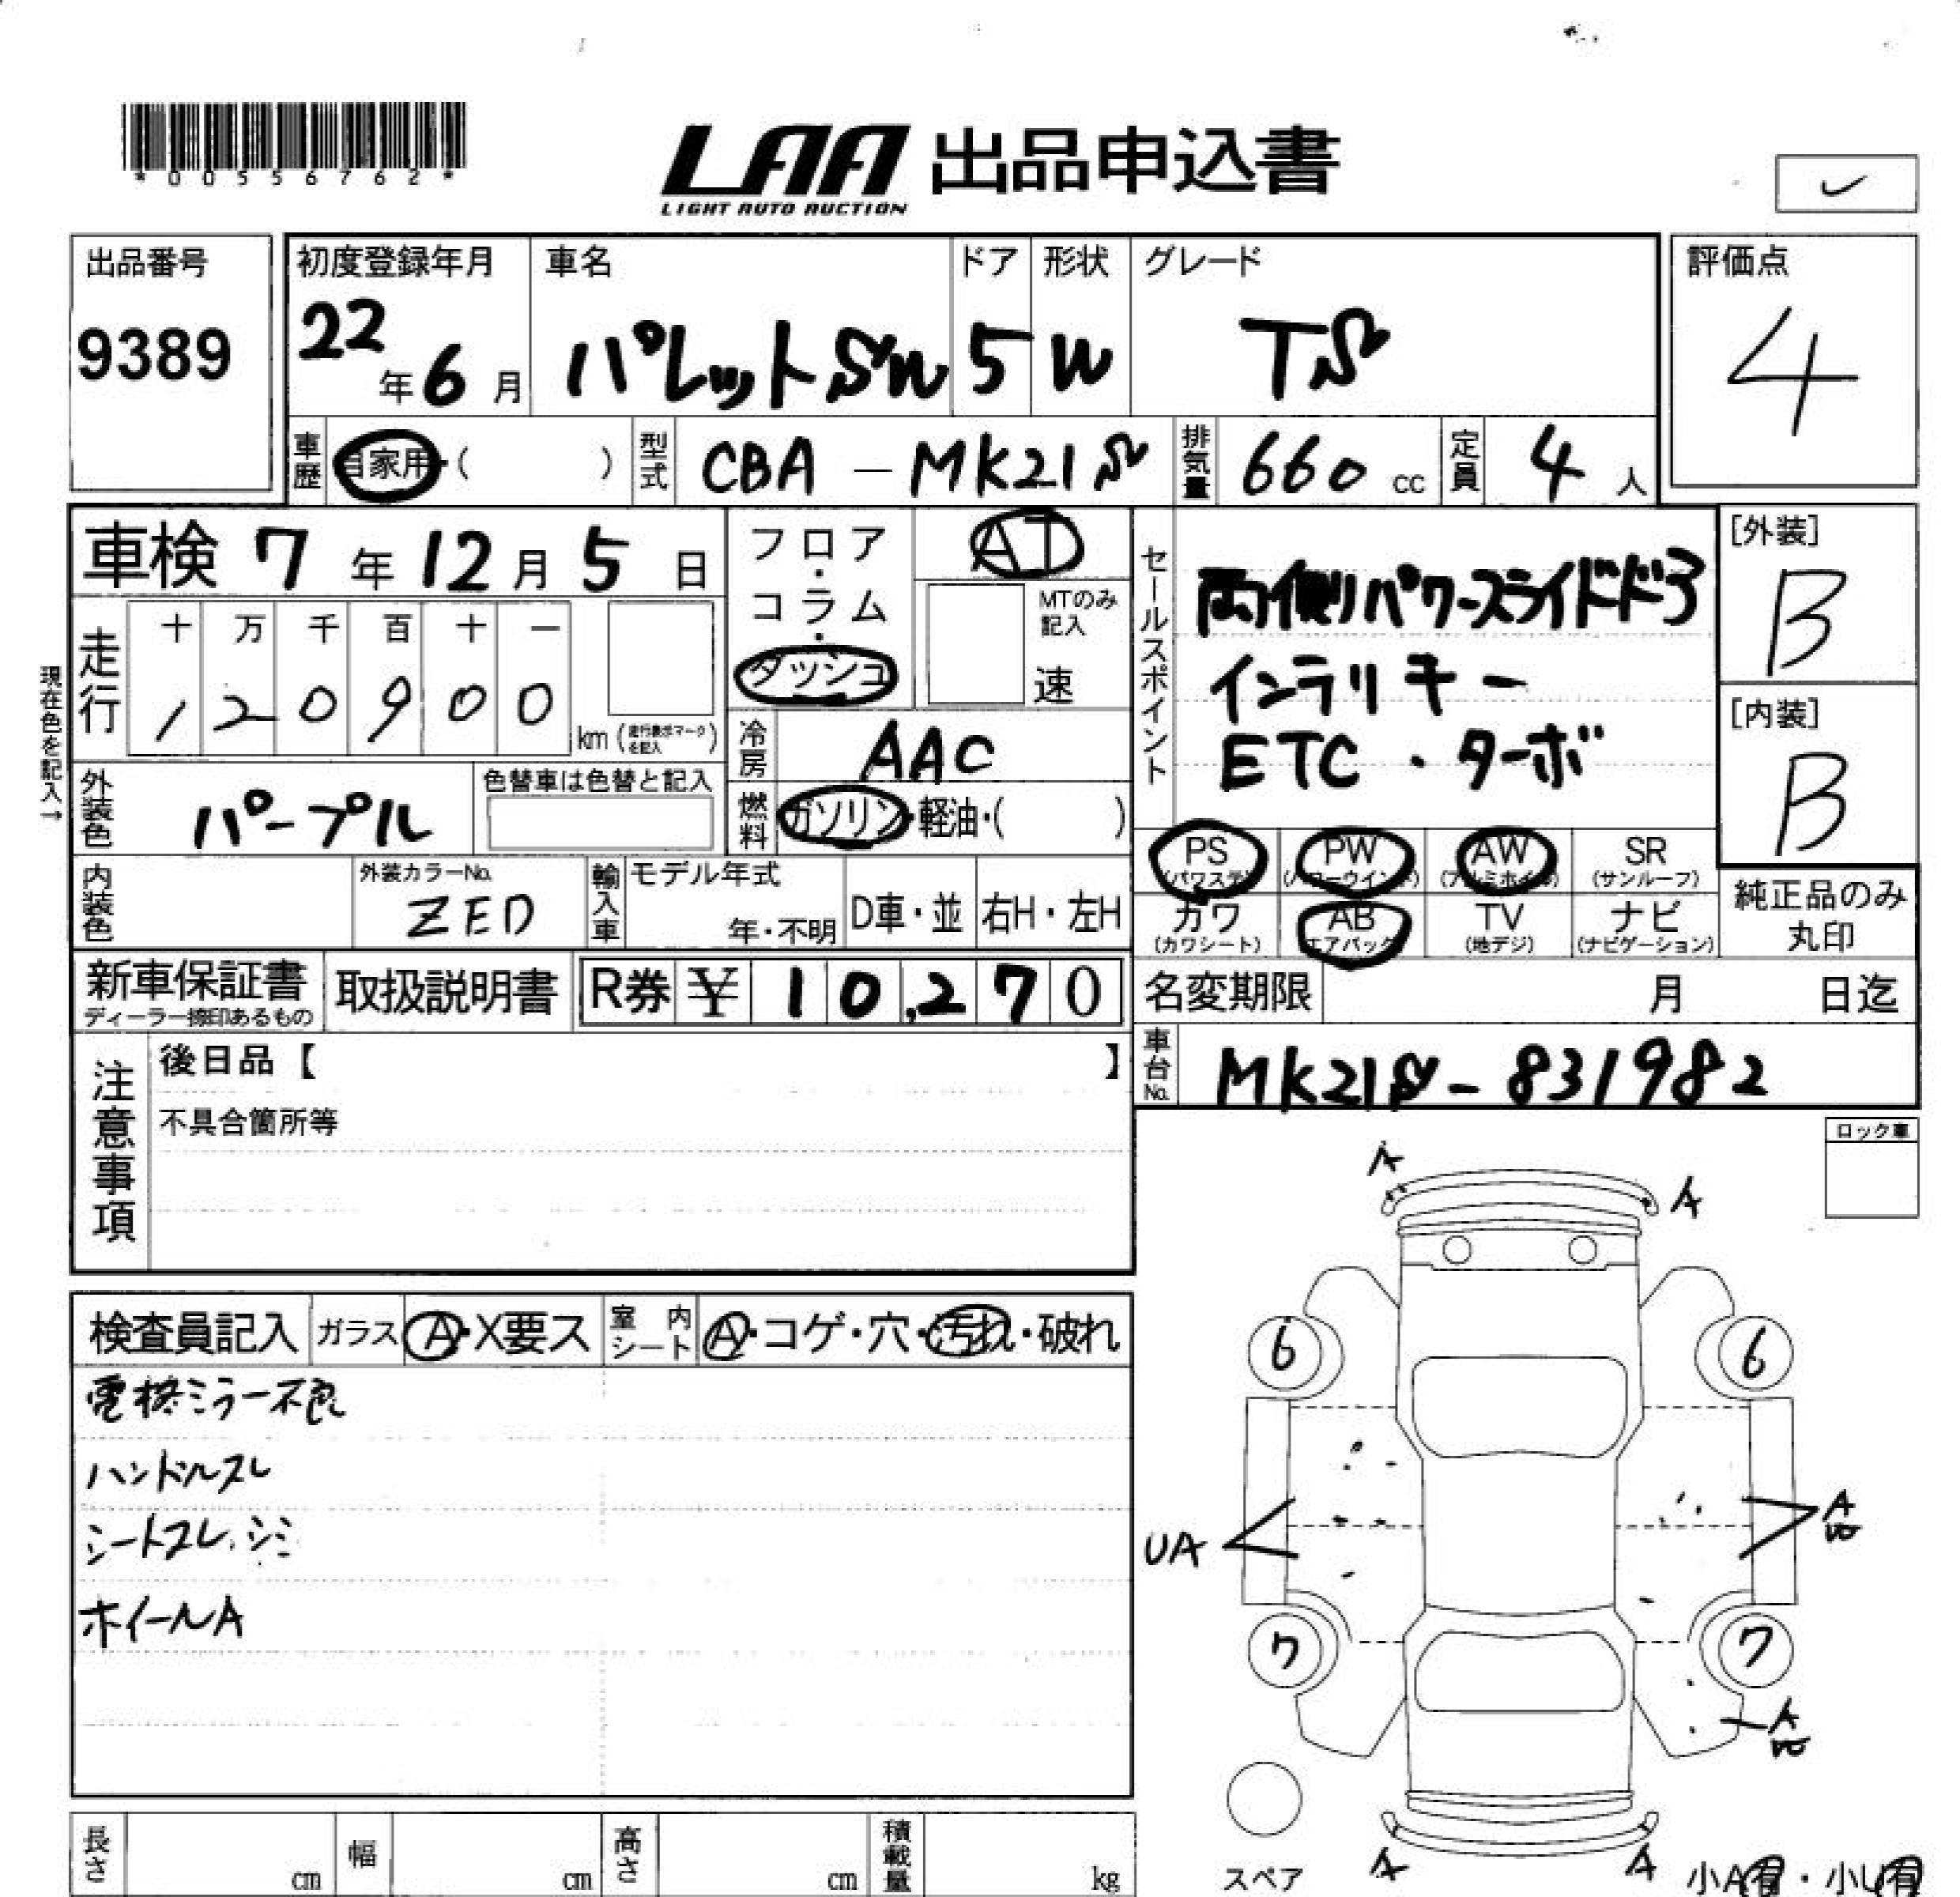 *00556762*
LAA 出品申込書
LIGHT AUTO AUCTION
出品番号
9389
初度登録年月
22年6月
車名
パレットSW
ドア
5
形状
W
グレード
TS
評価点
4
車歴
自家用・( )
型式
CBA-MK21S
排気量
660cc
定員
4人
車検 7年12月5日
フロア・コラム・ダッシュ
AT
MTのみ記入
速
セールスポイント
両側パワースライドドア
インテリキー
ETC・ターボ
[外装]
B
[内装]
B
現在色を記入→
走行
十 万 千 百 十 一
1 2 0 9 0 0
km(走行表示マークを記入)
冷房
AAC
外装色
パープル
色替車は色替と記入
燃料
ガソリン・軽油・( )
PS (パワステ)
PW (パワーウインド)
AW (アルミホイル)
SR (サンルーフ)
カワ (カワシート)
AB (エアバック)
TV (地デジ)
ナビ (ナビゲーション)
純正品のみ丸印
内装色
外装カラーNo.
ZED
輸入車
モデル年式
年・不明
D車・並
右H・左H
新車保証書
ディーラー捺印あるもの
取扱説明書
R券 ¥ 10,270
名変期限 月 日迄
車台No.
MK21S-831982
注意事項
後日品【 】
不具合箇所等
ロック車
検査員記入
ガラス A・X要ス
室内シート A・コゲ・穴・汚れ・破れ
電格ミラー不良
ハンドルスレ
シートスレ、シミ
ホイールA
A
A
6
6
UA
A
7
7
A
A
A
スペア
小A有・小U有
長さ cm
幅 cm
高さ cm
積載量 kg